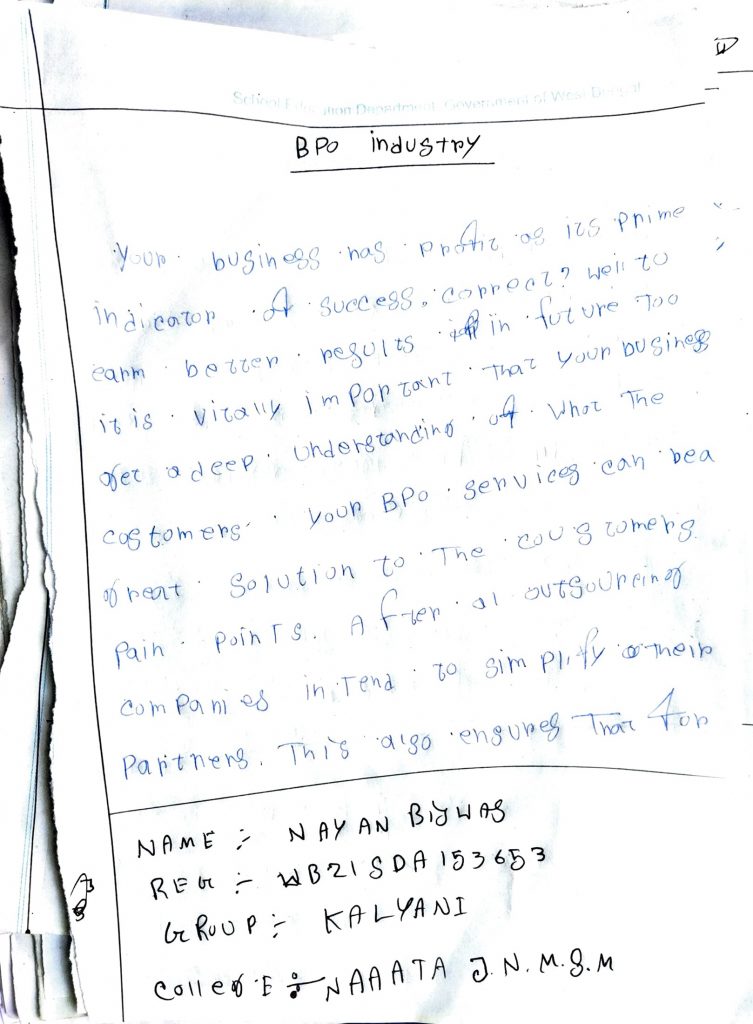 School Education Department, Government of West Bengal
BPO industry
Your business has profit as its prime
indicator of success. correct? well to
earn better results in future too
it is vitally important that your busines
get a deep understanding of what the
costomers. your BPO services can be a
great solution to the coustomers
pain points. After al outsourcing
companies intend to simplify their
partners. This also ensures that for
NAME :- NAYAN BISWAS
REG :- WB21SDA153653
GROUP :- KALYANI
College :- NAAATA J.N.M.S.M